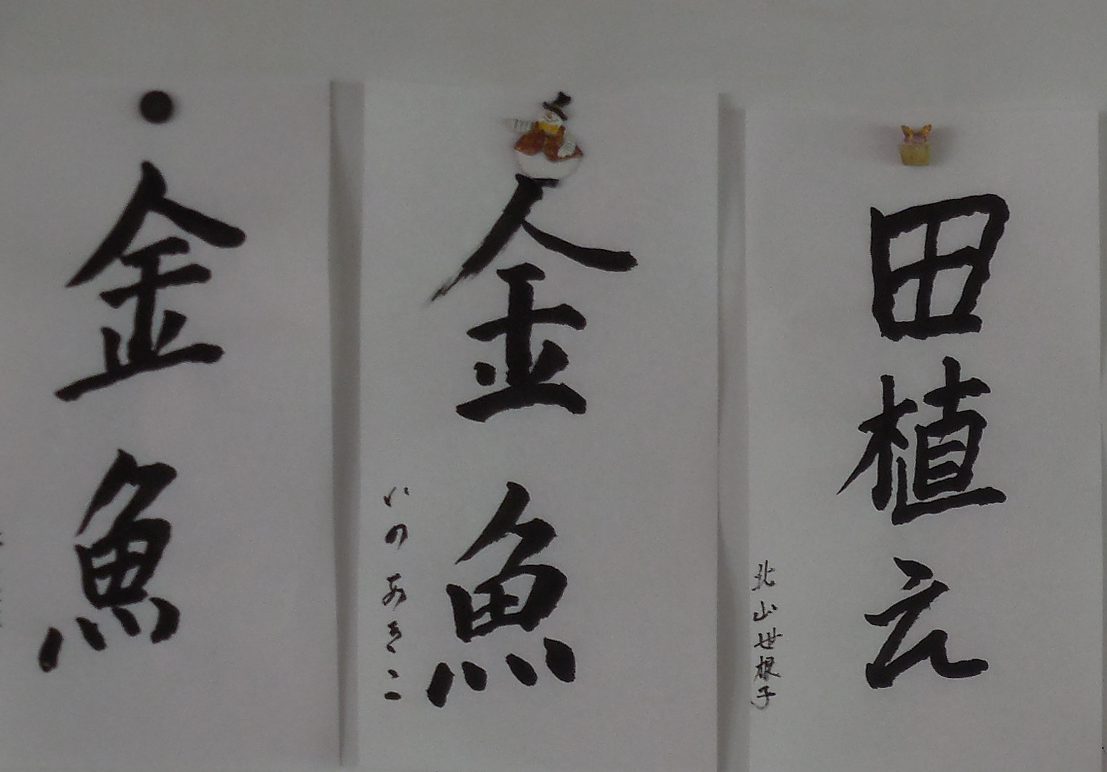 田植え
北山世根子
金魚
いのあきこ
金魚